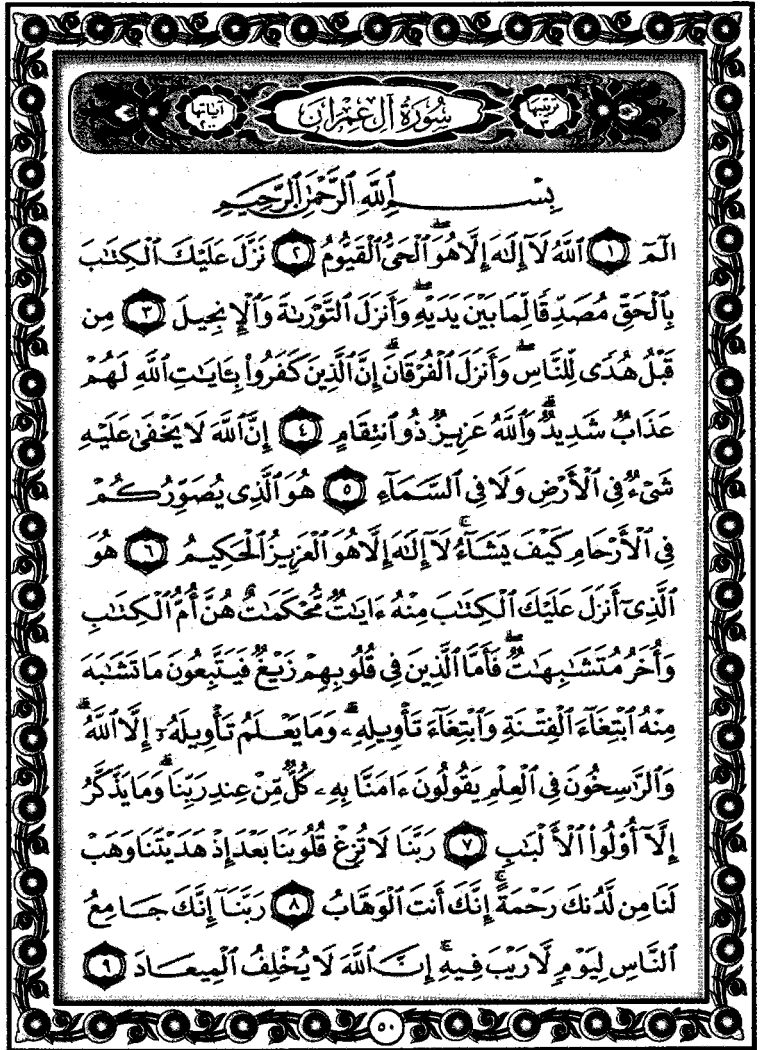 ترتيبها ٣ سُورَةُ آلِ عِمْرَانَ آياتها ٢٠٠
بِسْمِ ٱللَّهِ ٱلرَّحْمَٰنِ ٱلرَّحِيمِ
الٓمٓ ١ ٱللَّهُ لَآ إِلَٰهَ إِلَّا هُوَ ۖ ٱلْحَىُّ ٱلْقَيُّومُ ٢ نَزَّلَ عَلَيْكَ ٱلْكِتَٰبَ
بِٱلْحَقِّ مُصَدِّقًا لِّمَا بَيْنَ يَدَيْهِ ۖ وَأَنزَلَ ٱلتَّوْرَىٰةَ وَٱلْإِنجِيلَ ٣ مِن
قَبْلُ هُدًى لِّلنَّاسِ ۖ وَأَنزَلَ ٱلْفُرْقَانَ ۗ إِنَّ ٱلَّذِينَ كَفَرُوا۟ بِـَٔايَٰتِ ٱللَّهِ لَهُمْ
عَذَابٌ شَدِيدٌ ۗ وَٱللَّهُ عَزِيزٌ ذُو ٱنتِقَامٍ ٤ إِنَّ ٱللَّهَ لَا يَخْفَىٰ عَلَيْهِ
شَىْءٌ فِى ٱلْأَرْضِ وَلَا فِى ٱلسَّمَآءِ ٥ هُوَ ٱلَّذِى يُصَوِّرُكُمْ
فِى ٱلْأَرْحَامِ كَيْفَ يَشَآءُ ۚ لَآ إِلَٰهَ إِلَّا هُوَ ٱلْعَزِيزُ ٱلْحَكِيمُ ٦ هُوَ
ٱلَّذِىٓ أَنزَلَ عَلَيْكَ ٱلْكِتَٰبَ مِنْهُ ءَايَٰتٌ مُّحْكَمَٰتٌ هُنَّ أُمُّ ٱلْكِتَٰبِ
وَأُخَرُ مُتَشَٰبِهَٰتٌ ۖ فَأَمَّا ٱلَّذِينَ فِى قُلُوبِهِمْ زَيْغٌ فَيَتَّبِعُونَ مَا تَشَٰبَهَ
مِنْهُ ٱبْتِغَآءَ ٱلْفِتْنَةِ وَٱبْتِغَآءَ تَأْوِيلِهِۦ ۗ وَمَا يَعْلَمُ تَأْوِيلَهُۥٓ إِلَّا ٱللَّهُ ۗ
وَٱلرَّٰسِخُونَ فِى ٱلْعِلْمِ يَقُولُونَ ءَامَنَّا بِهِۦ كُلٌّ مِّنْ عِندِ رَبِّنَا ۗ وَمَا يَذَّكَّرُ
إِلَّآ أُو۟لُوا۟ ٱلْأَلْبَٰبِ ٧ رَبَّنَا لَا تُزِغْ قُلُوبَنَا بَعْدَ إِذْ هَدَيْتَنَا وَهَبْ
لَنَا مِن لَّدُنكَ رَحْمَةً ۚ إِنَّكَ أَنتَ ٱلْوَهَّابُ ٨ رَبَّنَآ إِنَّكَ جَامِعُ
ٱلنَّاسِ لِيَوْمٍ لَّا رَيْبَ فِيهِ ۚ إِنَّ ٱللَّهَ لَا يُخْلِفُ ٱلْمِيعَادَ ٩
٥٠